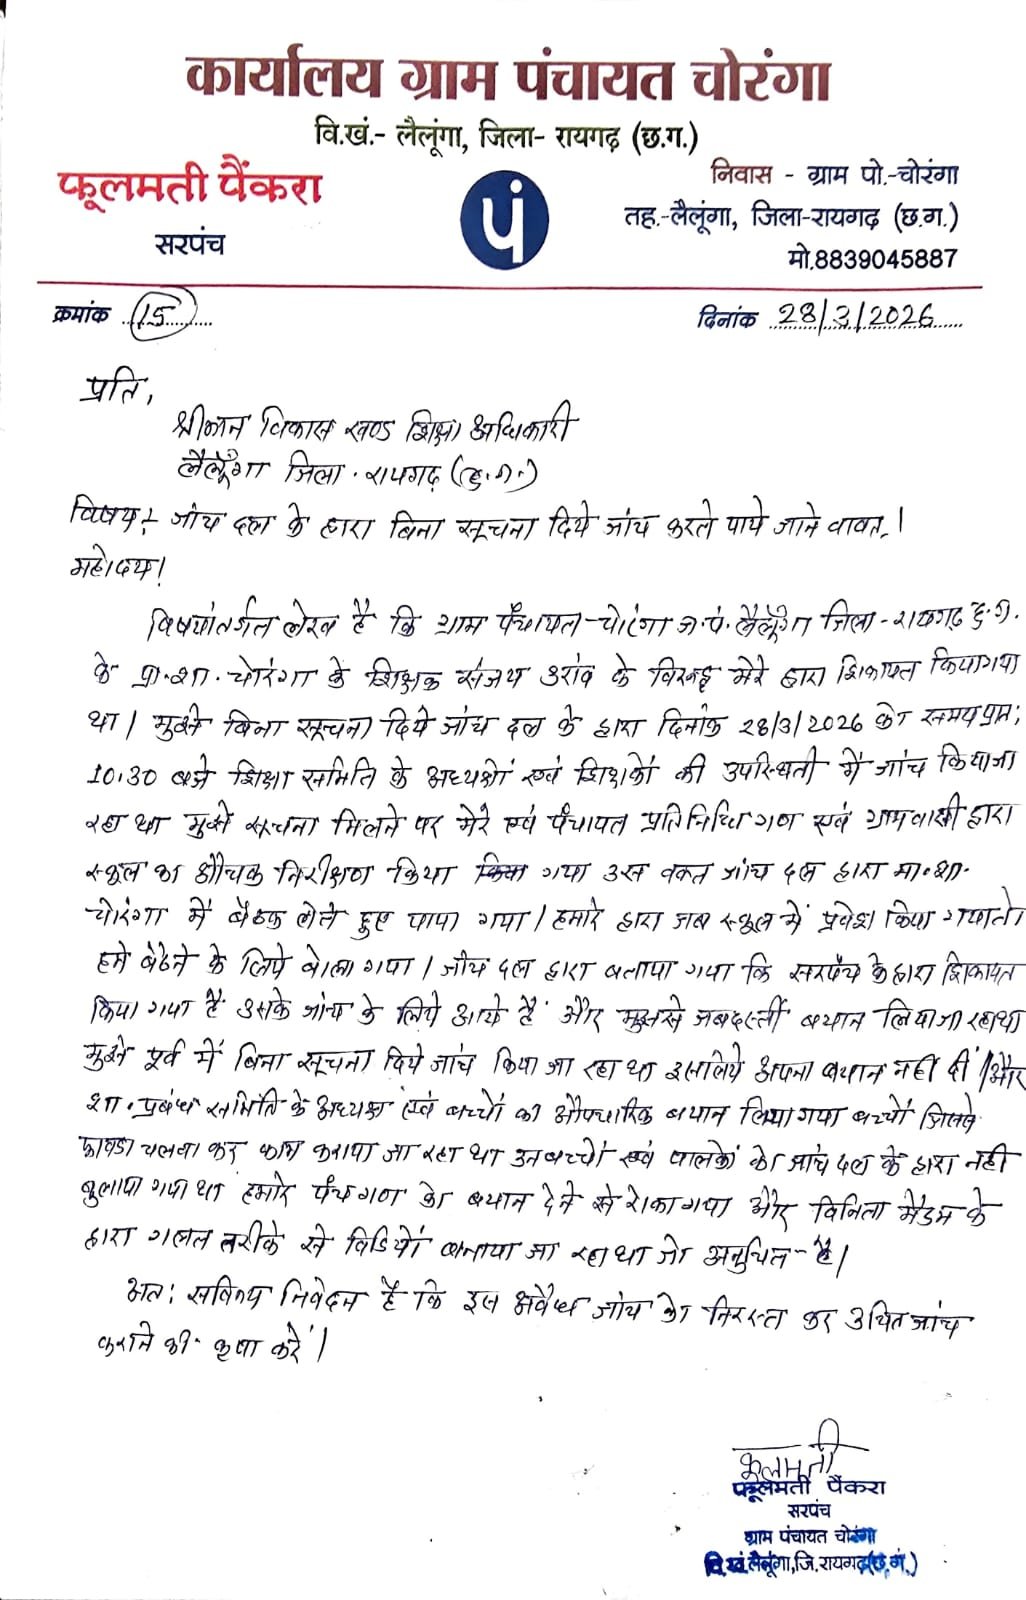 कार्यालय ग्राम पंचायत चोरंगा
वि.खं.- लैलूंगा, जिला- रायगढ़ (छ.ग.)
फूलमती पैंकरा
सरपंच
पं
निवास - ग्राम पो.-चोरंगा
तह.-लैलूंगा, जिला-रायगढ़ (छ.ग.)
मो.8839045887
क्रमांक 15
दिनांक 28/3/2026
प्रति,
श्रीमान विकास खण्ड शिक्षा अधिकारी
लैलूंगा जिला - रायगढ़ (छ.ग.)
विषय :- जांच दल के द्वारा बिना सूचना दिये जांच करते पाये जाने वावत्।
महोदय।
विषयांतर्गत लेख है कि ग्राम पंचायत - चोरंगा ज.पं. लैलूंगा जिला - रायगढ़ छ.ग.
के प्रा.शा. चोरंगा के शिक्षक संजय उरांव के विरूद्ध मेरे द्वारा शिकायत किया गया
था। मुझे बिना सूचना दिये जांच दल के द्वारा दिनांक 28/3/2026 को समय प्रातः
10:30 बजे शिक्षा समिति के अध्यक्षों एवं शिक्षकों की उपस्थिती में जांच किया जा
रहा था मुझे सूचना मिलने पर मेरे एवं पंचायत प्रतिनिधि गण एवं ग्रामवासी द्वारा
स्कूल का औचक निरीक्षण किया गया उस वक्त जांच दल द्वारा मा.शा.
चोरंगा में बैठक लेते हुए पाया गया। हमारे द्वारा जब स्कूल में प्रवेश किया गया तो
हमे बैठेने के लिये बोला गया। जांच दल द्वारा बताया गया कि सरपंच के द्वारा शिकायत
किया गया है उसके जांच के लिये आये है और मुझसे जबदस्ती बयान लिया जा रहा था
मुझे पूर्व में बिना सूचना दिये जांच किया जा रहा था इसलिये अपना बयान नहीं दी। और
शा. प्रबंध समिति के अध्यक्ष एवं बच्चों का औपचारिक बयान लिया गया बच्चों जिससे
फावडा चलवा कर काम कराया जा रहा था उन बच्चों एवं पालकों को जांच दल के द्वारा नही
बुलाया गया था हमारे पंच गण को बयान देने से रोका गया और विनिता मैडम के
द्वारा गलत तरीके से विडियों बनाया जा रहा था जो अनुचित है।
अतः सविनय निवेदन है कि इस अवैध जांच को निरस्त कर उचित जांच
कराने की कृपा करें।
फूलमती
फूलमती पैंकरा
सरपंच
ग्राम पंचायत चोरंगा
वि.खं. लैलूंगा, जि. रायगढ़ (छ.ग.)